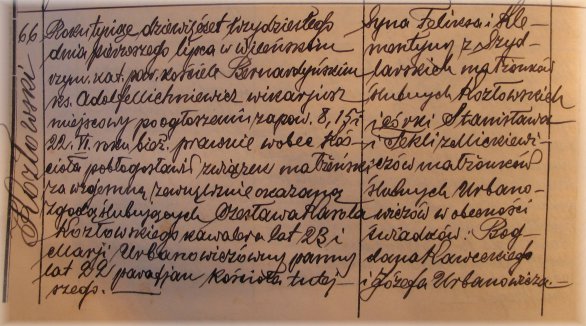 66
Kozłowski
Roku tysiąc dziewięćset trzydziestego
dnia pierwszego lipca w Wileńskim
rzym. kat. par. kościele Bernardyńskim
ks. Adolf Michniewicz wikarjusz
miejscowy po ogłoszeniu zapow. 8, 15 i
22. VI. roku bież. prawnie wobec koś-
cioła pobłogosławił związek małżeński
za wzajemną zewnętrznie okazaną
zgodą ślubujących Czesława Karola
Kozłowskiego kawalera lat 23 i
Marji Urbanowiczówny panny
lat 22 parafjan kościoła tutej-
szego.
Syna Feliksa i Kle-
mentyny z Szyd-
larskich małżonków
ślubnych Kozłowskich
i córki Stanisława
i Tekli z Mickiewi-
czów małżonków
ślubnych Urbano-
wiczów w obecności
świadków: Bog-
dana Kaweckiego
i Józefa Urbanowicza.